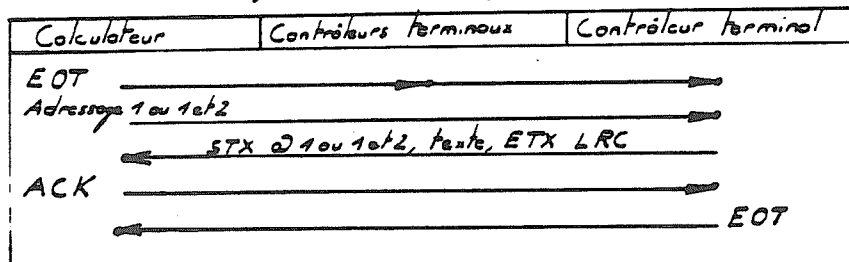 Calculateur Contrôleurs terminaux Contrôleur terminal
EOT
Adressage 1 ou 1 et 2
STX @ 1 ou 1 et 2, texte, ETX LRC
ACK
EOT